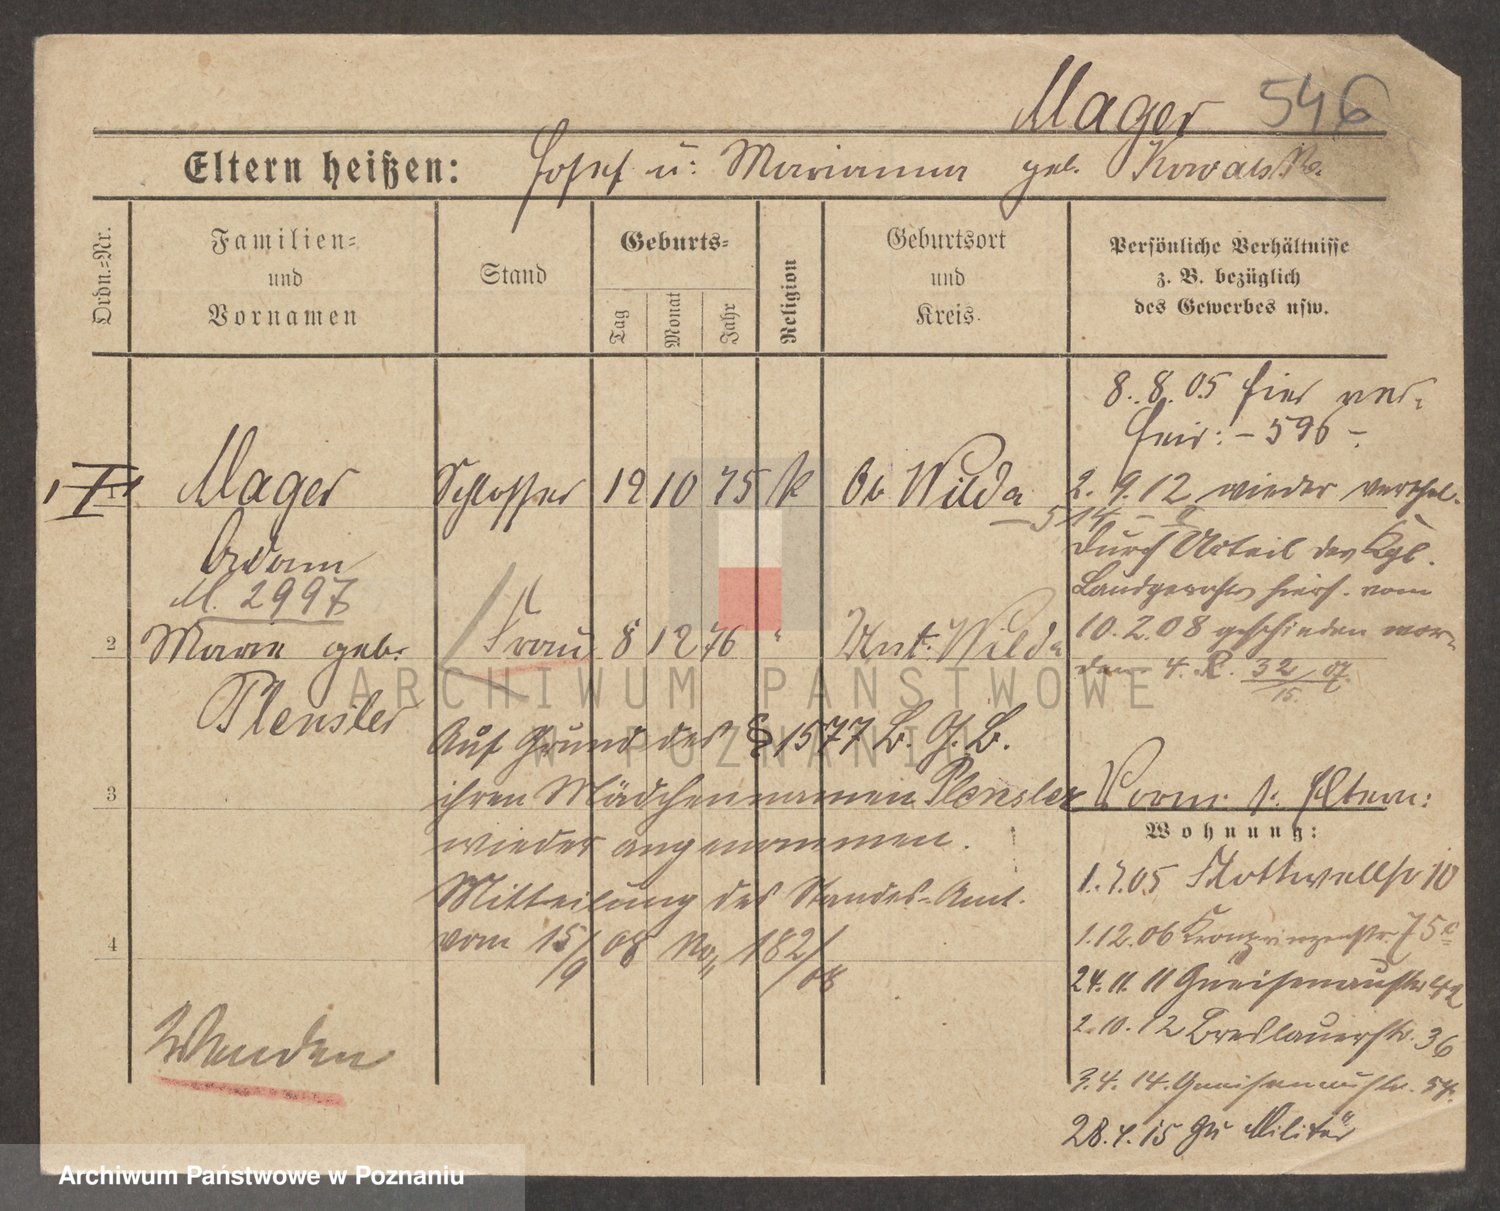 Mager 546
Eltern heißen: Josef u: Marianna geb. Kowalski.
Ordn.=Nr.
Familien=
und
Vornamen
Stand
Geburts=
Tag
Monat
Jahr
Religion
Geburtsort
und
Kreis.
Persönliche Verhältnisse
z. B. bezüglich
des Gewerbes usw.
8. 8. 05 hier ver-
heir: – 596 –.
1 Mager Schlosser 12 10 75 k Ob Wilda
2. 9. 12 wieder verehel.
514 – II
Adam
M. 2997
durch Urteil des Kgl.
Landgerichts hiers. vom
10. 2. 08 geschieden wor-
den 4. R. 32/07
15
2 Marie geb. Frau 8 12 76 " Unt. Wilda
Plensler
Auf Grund des § 1577 B. G. B.
3 ihren Mädchennamen Plensler
wieder angenommen.
Mitteilung des Standes-Amt.
4 vom 15/9 08 No 182/08
Wenden
Vorm. b. Eltern:
Wohnung:
1. 7. 05 Kottwellstr 10
1. 12. 06 Kronprinzenstr 75
24. 11. 11 Gneisenaustr 42
2. 10. 12 Breslauerstr. 36
3. 4. 14. Gneisenaustr. 54.
28. 4. 15 zu Militär
ARCHIWUM PAŃSTWOWE
W POZNANIU
Archiwum Państwowe w Poznaniu